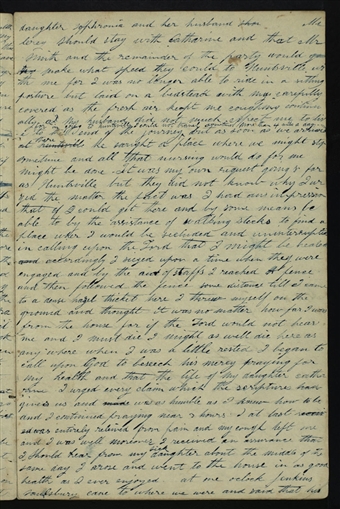 daughter Sophronia and her husband Shoe Mc
lves should stay with Catharine and that Mr
Smith and the remainder of the party would you
make what speed they could to Huntsville as
the me for I was no longer able to ride in a sitting
posture but laid on a bedstead with my carefully
covered as the fresh air kept me coughing continu
ally, as My husband did not much expect me to live
to the end of the journey but as soon as we arrived
at Huntsville he sought a place where we might stop
sometime and all that nursing would do for me
might be done It was my own request going so far
as Huntsville but they did not know why I ur
ged the matter the fact was I had an impression
that if I could get here and by some means be
able to by the assistance of walking sticks to find a
place where I would be secluded and uninterrupted
in calling upon the Lord that I might be healed
accordingly I seized upon a time when they were
engaged and by the aid of staffs I reached A fence
and then followed the fence some distance till I came
to a dense hazel thicket here I threw myself on the
ground and thought It was no matter how far I was
from the house for if the Lord would not hear
me and I must die I might as well die here as
any where when I was a little rested I began to
call upon God to beseech his mercy praying for
my health and that the life of my daughter Catha
rine I urged every claim which the scripture has
given us and was as humble as I knew how to be
and I continued praying near 3 hours I at last
was entirely relieved from pain and my cough left me
and I was well moreover I received an assurance that
I should hear from my sick daughter about the middle of the
same day I arose and went to the house in as good
health as I ever enjoyed at one oclock Jenkins
Saulsbury came to where we were and said that his